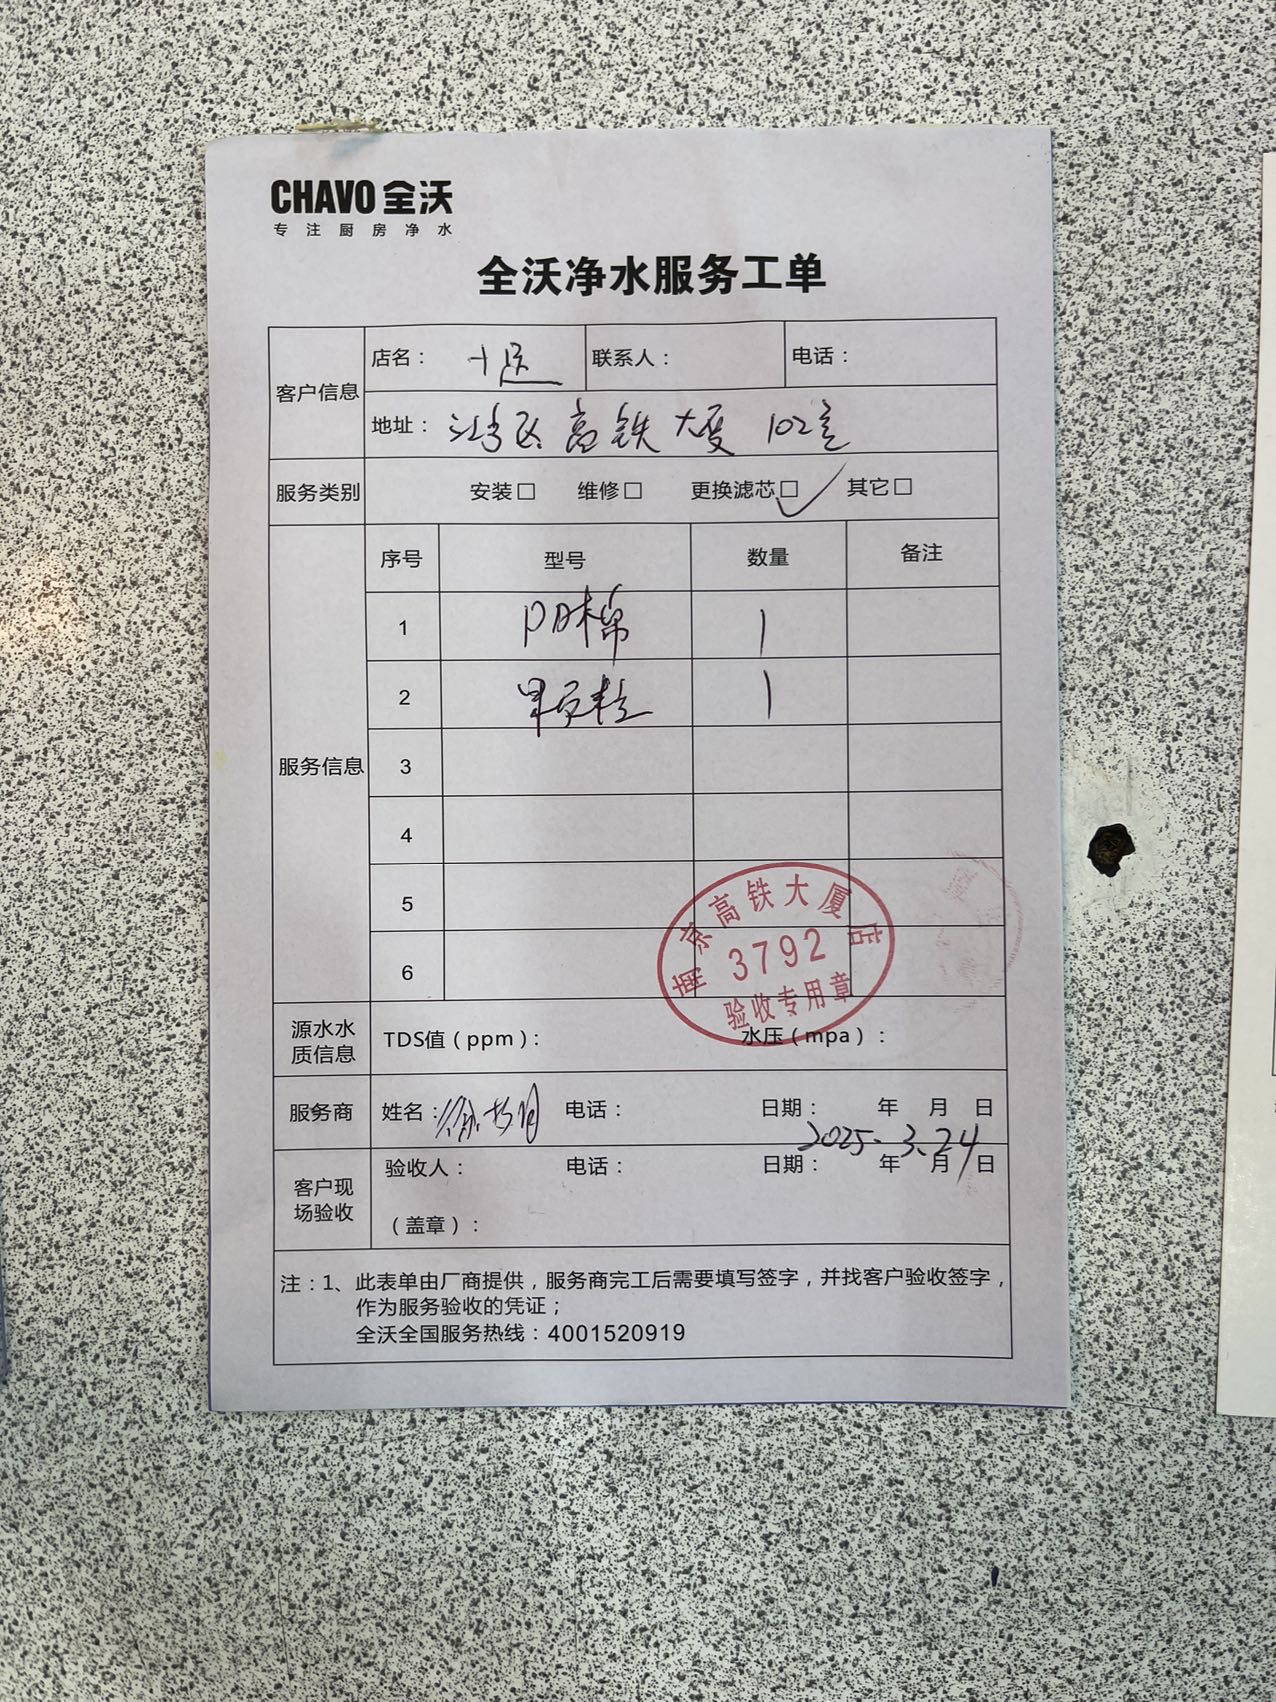 CHAVO 全沃
专注厨房净水
全沃净水服务工单
客户信息
店名：
联系人：
电话：
地址： 高铁大厦 102室
服务类别
安装□ 维修□ 更换滤芯□ ✓ 其它□
服务信息
序号 型号 数量 备注
1 PP棉 1
2 颗粒 1
3
4
5
6
南京高铁大厦店
3792
验收专用章
源水水质信息
TDS值（ppm）： 水压（mpa）：
服务商
姓名： 电话： 日期： 年 月 日
2025.3.24
客户现场验收
验收人： 电话： 日期： 年 月 日
（盖章）：
注：1、此表单由厂商提供，服务商完工后需要填写签字，并找客户验收签字，
作为服务验收的凭证；
全沃全国服务热线：4001520919